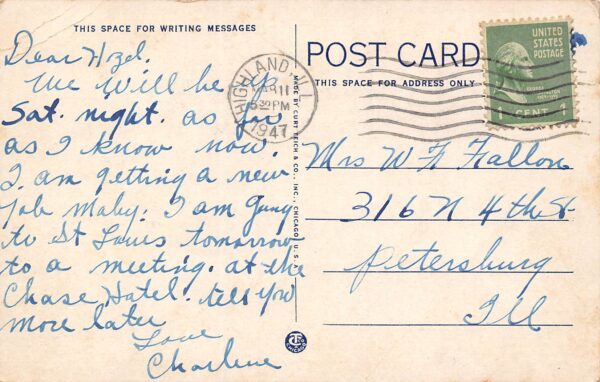 THIS SPACE FOR WRITING MESSAGES
Dear Hazel.
We Will be up
Sat. night. as far
as I know now.
I. am getting a new
Job Maby. I am Going
to St Louis tomorrow
to a meeting. at the
Chase Hotel. tell you
more later
Love
Charlene
MADE BY CURT TEICH & CO., INC., CHICAGO, U. S. A.
POST CARD
THIS SPACE FOR ADDRESS ONLY
HIGHLAND, ILL
11
530 PM
1947
UNITED
STATES
POSTAGE
1 CENT 1
Mrs W H Fallon
316 N 4th St
Petersburg
Ill